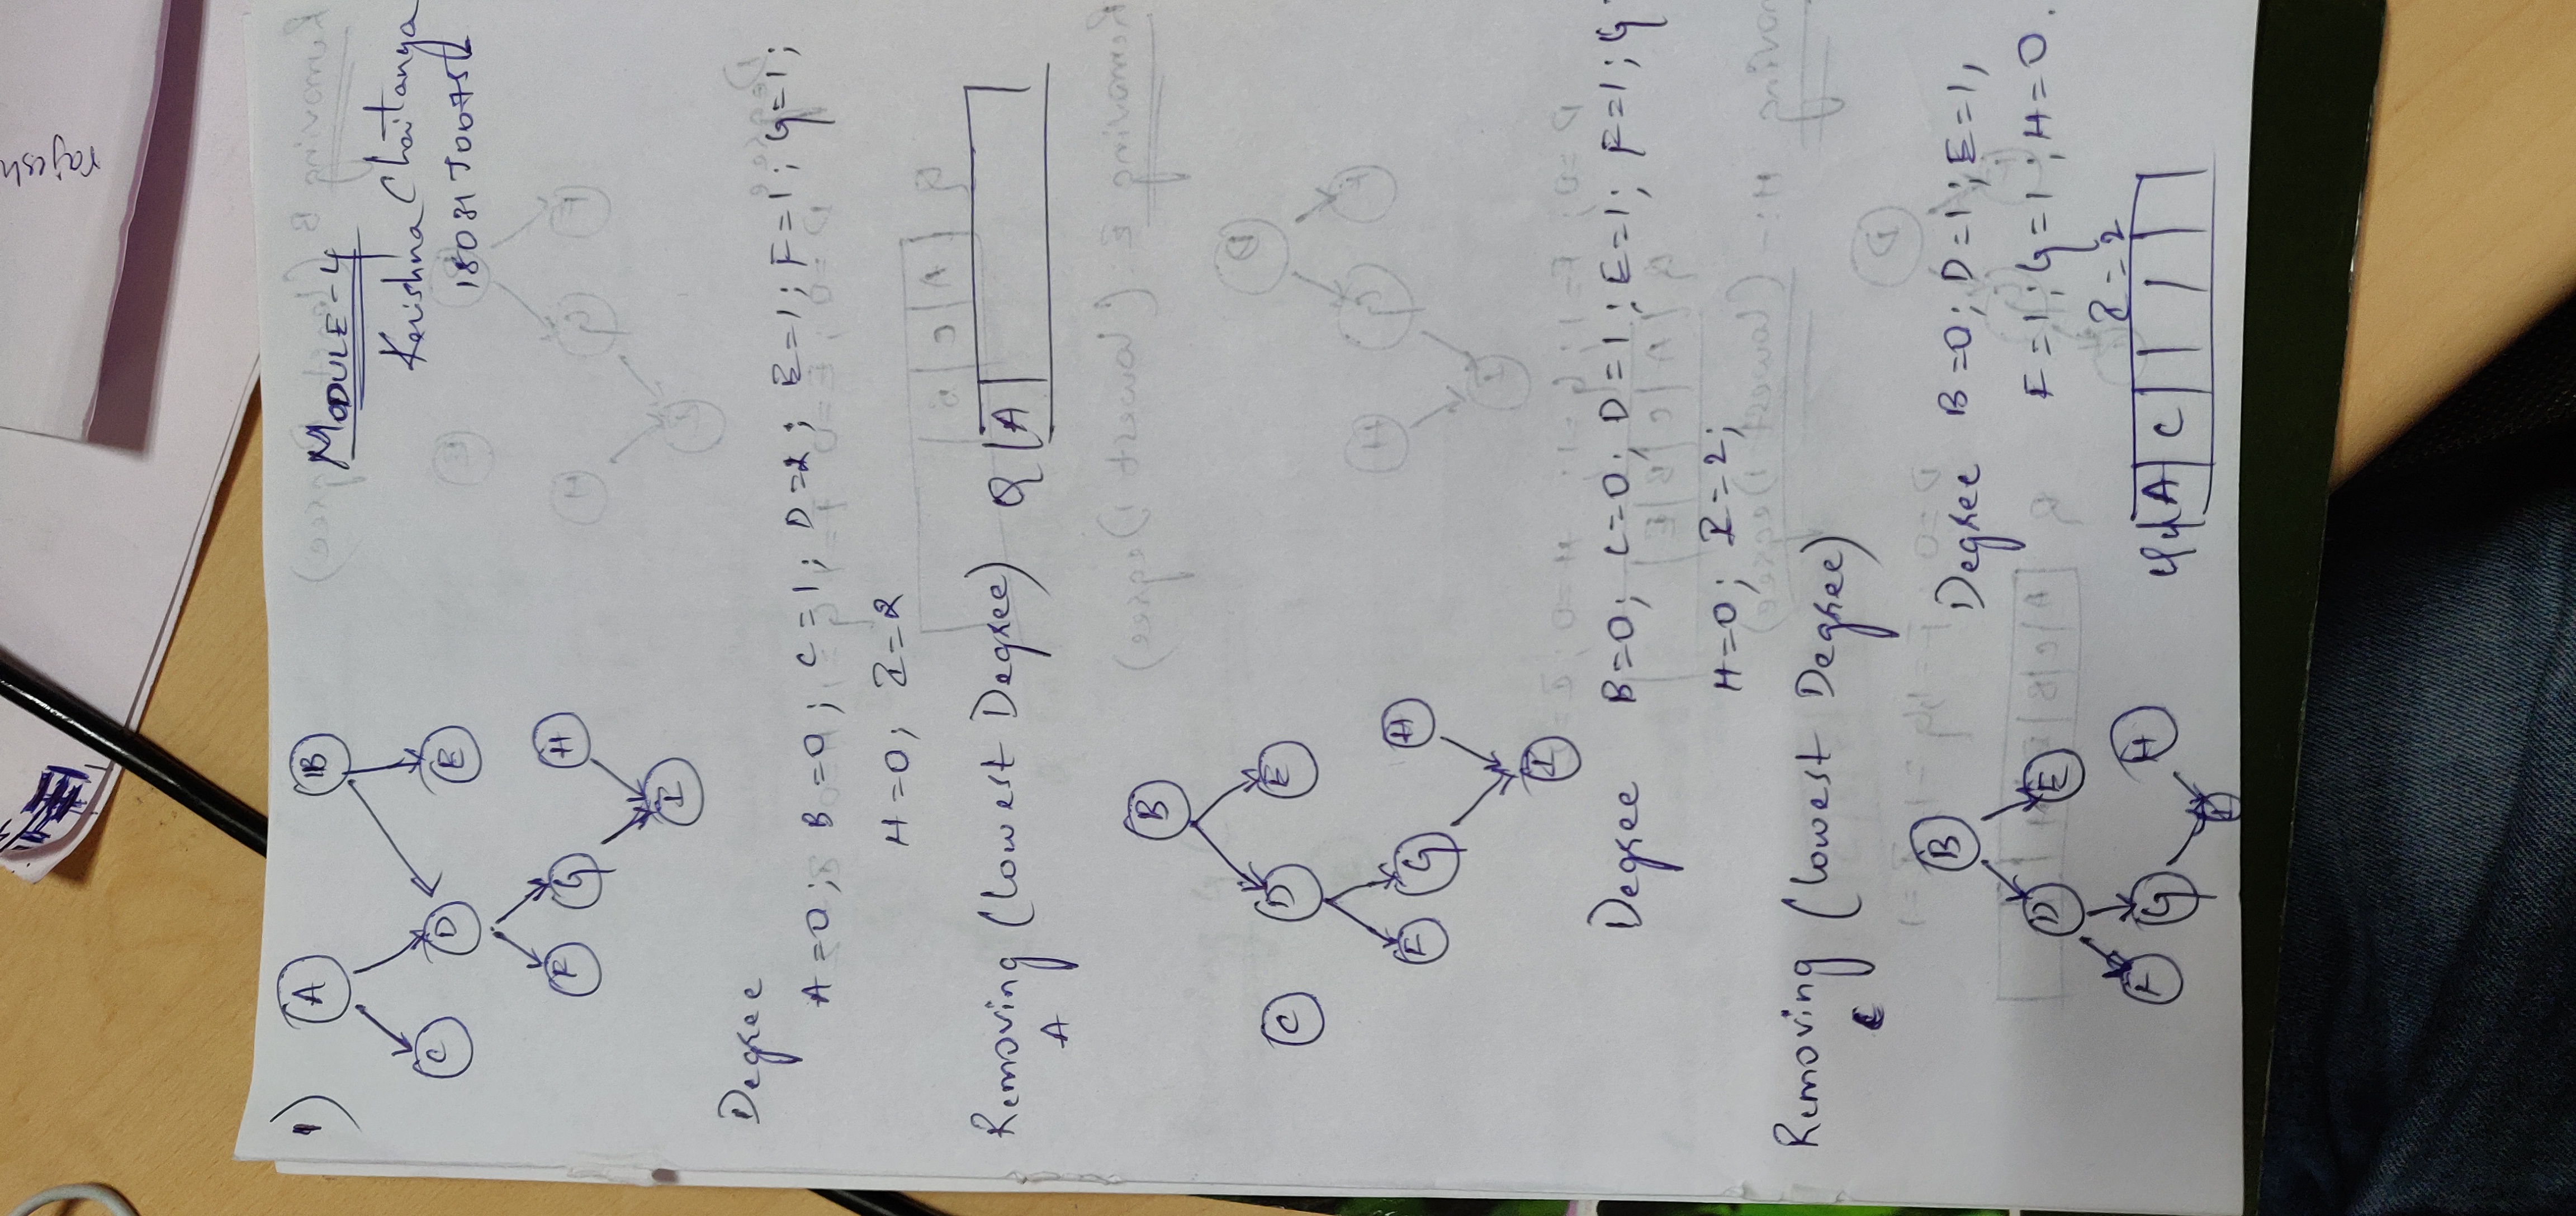 rajesh
1)
A B
MODULE-4
Krishna Chaitanya
C D E
F G H
I
Degree
A=0; B=0; C=1; D=2; E=1; F=1; G=1;
H=0; I=2
Removing (lowest Degree) Q A
A
B
C D E
F G H
I
Degree B=0; C=0; D=1; E=1; F=1; G
H=0; I=2;
Removing (lowest Degree)
C
B
Degree B=0; D=1; E=1,
D E
F=1; G=1; H=0.
I=2
F G H
A C
I